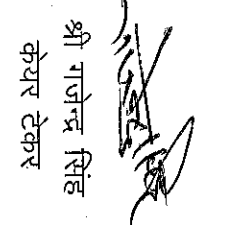 श्री गजेन्द्र सिंह
केयर टेकर